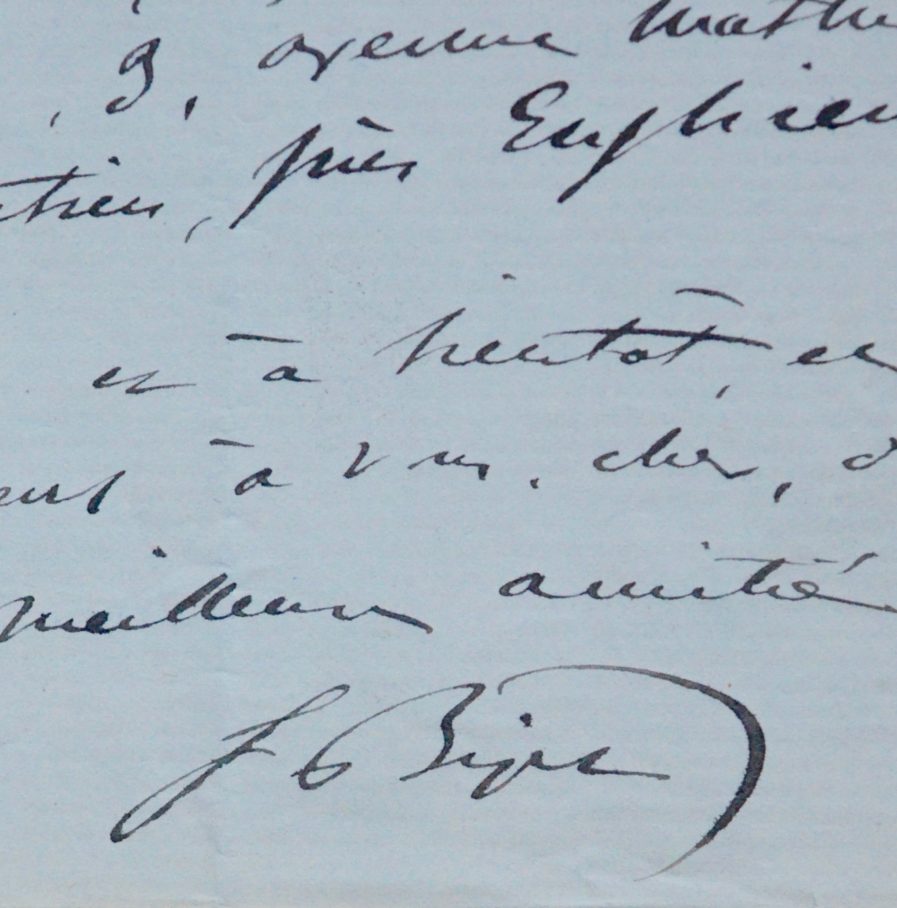 , 9, avenue Math
tien, près Enghien
et à bientôt, et
à vous, cher, d
meilleure amitié